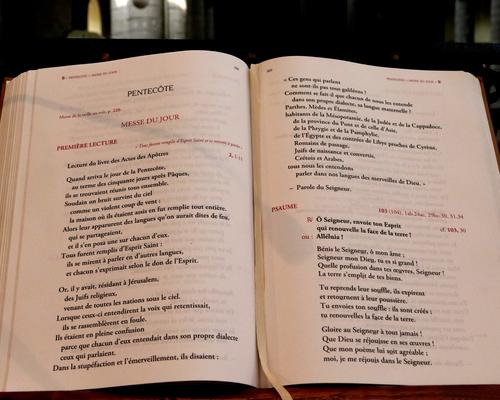 PENTECÔTE
Messe de la veille au soir, p. 226.
MESSE DU JOUR
PREMIÈRE LECTURE
« Tous furent remplis d'Esprit Saint et se mirent à parler »
2, 1-11
Lecture du livre des Actes des Apôtres
Quand arriva le jour de la Pentecôte,
au terme des cinquante jours après Pâques,
ils se trouvaient réunis tous ensemble.
Soudain un bruit survint du ciel
comme un violent coup de vent :
la maison où ils étaient assis en fut remplie tout entière.
Alors leur apparurent des langues qu'on aurait dites de feu,
qui se partageaient,
et il s'en posa une sur chacun d'eux.
Tous furent remplis d'Esprit Saint :
ils se mirent à parler en d'autres langues,
et chacun s'exprimait selon le don de l'Esprit.
Or, il y avait, résidant à Jérusalem,
des Juifs religieux,
venant de toutes les nations sous le ciel.
Lorsque ceux-ci entendirent la voix qui retentissait,
ils se rassemblèrent en foule.
Ils étaient en pleine confusion
parce que chacun d'eux entendait dans son propre dialecte
ceux qui parlaient.
Dans la stupéfaction et l'émerveillement, ils disaient :
PENTECÔTE – MESSE DU JOUR
« Ces gens qui parlent
ne sont-ils pas tous galiléens ?
Comment se fait-il que chacun de nous les entende
dans son propre dialecte, sa langue maternelle ?
Parthes, Mèdes et Élamites,
habitants de la Mésopotamie, de la Judée et de la Cappadoce,
de la province du Pont et de celle d'Asie,
de la Phrygie et de la Pamphylie,
de l'Égypte et des contrées de Libye proches de Cyrène,
Romains de passage,
Juifs de naissance et convertis,
Crétois et Arabes,
tous nous les entendons
parler dans nos langues des merveilles de Dieu. »
– Parole du Seigneur.
PSAUME
103 (104), 1ab.24ac, 29bc-30, 31.34
℟ Ô Seigneur, envoie ton Esprit
cf. 103, 30
qui renouvelle la face de la terre !
ou : Alléluia !
Bénis le Seigneur, ô mon âme ;
Seigneur mon Dieu, tu es si grand !
Quelle profusion dans tes œuvres, Seigneur !
La terre s'emplit de tes biens.
Tu reprends leur souffle, ils expirent
et retournent à leur poussière.
Tu envoies ton souffle : ils sont créés ;
tu renouvelles la face de la terre.
Gloire au Seigneur à tout jamais !
Que Dieu se réjouisse en ses œuvres !
Que mon poème lui soit agréable ;
moi, je me réjouis dans le Seigneur.